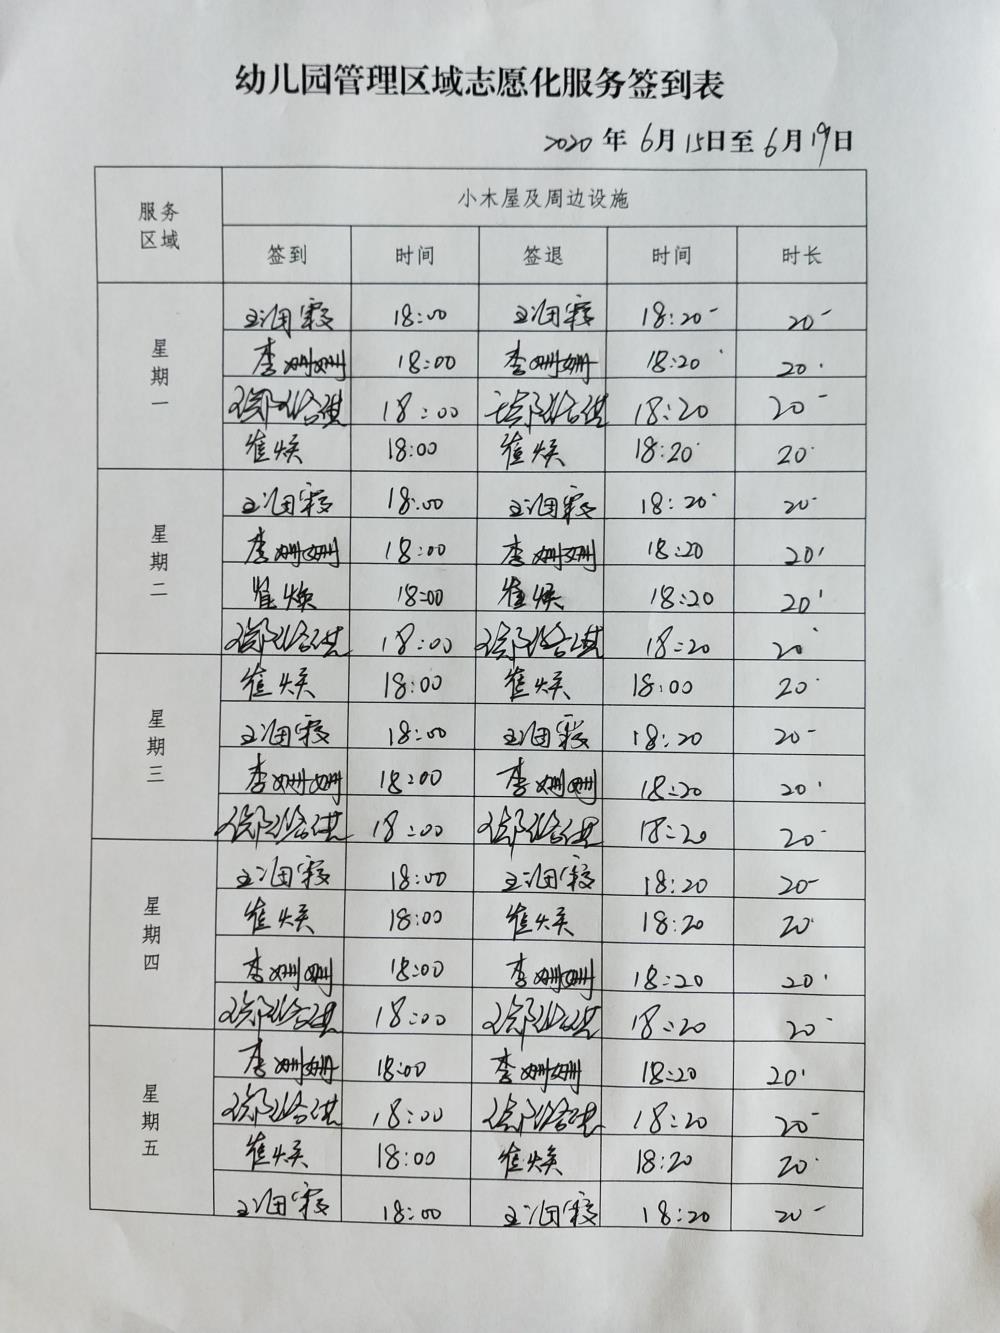 幼儿园管理区域志愿化服务签到表
2020年6月15日至6月19日
服务区域 小木屋及周边设施
签到 时间 签退 时间 时长
星期一
18:00 18:20 20'
李姗姗 18:00 李姗姗 18:20 20'
18:00 18:20 20'
崔焕 18:00 崔焕 18:20 20'
星期二
18:00 18:20 20'
李姗姗 18:00 李姗姗 18:20 20'
崔焕 18:00 崔焕 18:20 20'
18:00 18:20 20'
星期三
崔焕 18:00 崔焕 18:00 20'
18:00 18:20 20'
李姗姗 18:00 李姗姗 18:20 20'
18:00 18:20 20'
星期四
18:00 18:20 20'
崔焕 18:00 崔焕 18:20 20'
李姗姗 18:00 李姗姗 18:20 20'
18:00 18:20 20'
星期五
李姗姗 18:00 李姗姗 18:20 20'
18:00 18:20 20'
崔焕 18:00 崔焕 18:20 20'
18:00 18:20 20'